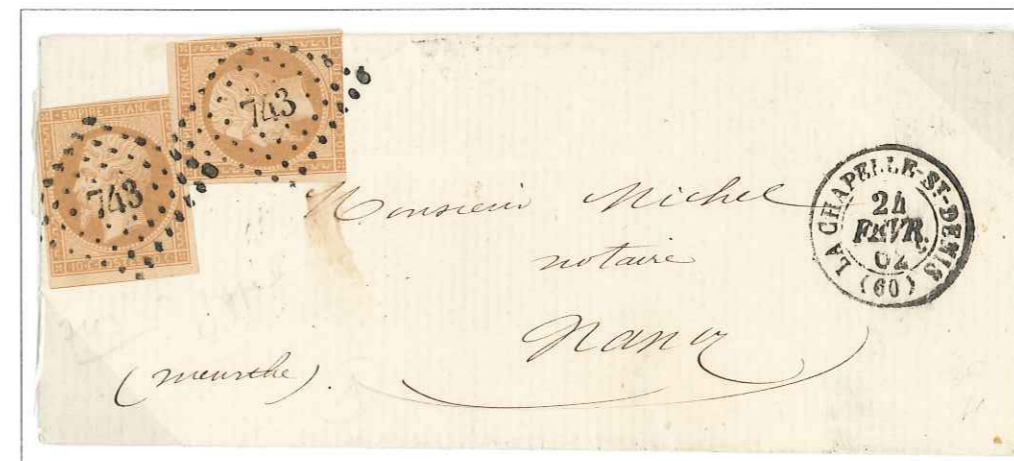 EMPIRE FRANC
743
10 C. POSTES 10 C.
743
Monsieur Michel
notaire
Nancy
(meurthe).
LA CHAPELLE-ST-DENIS
24
FEVR.
62
(60)